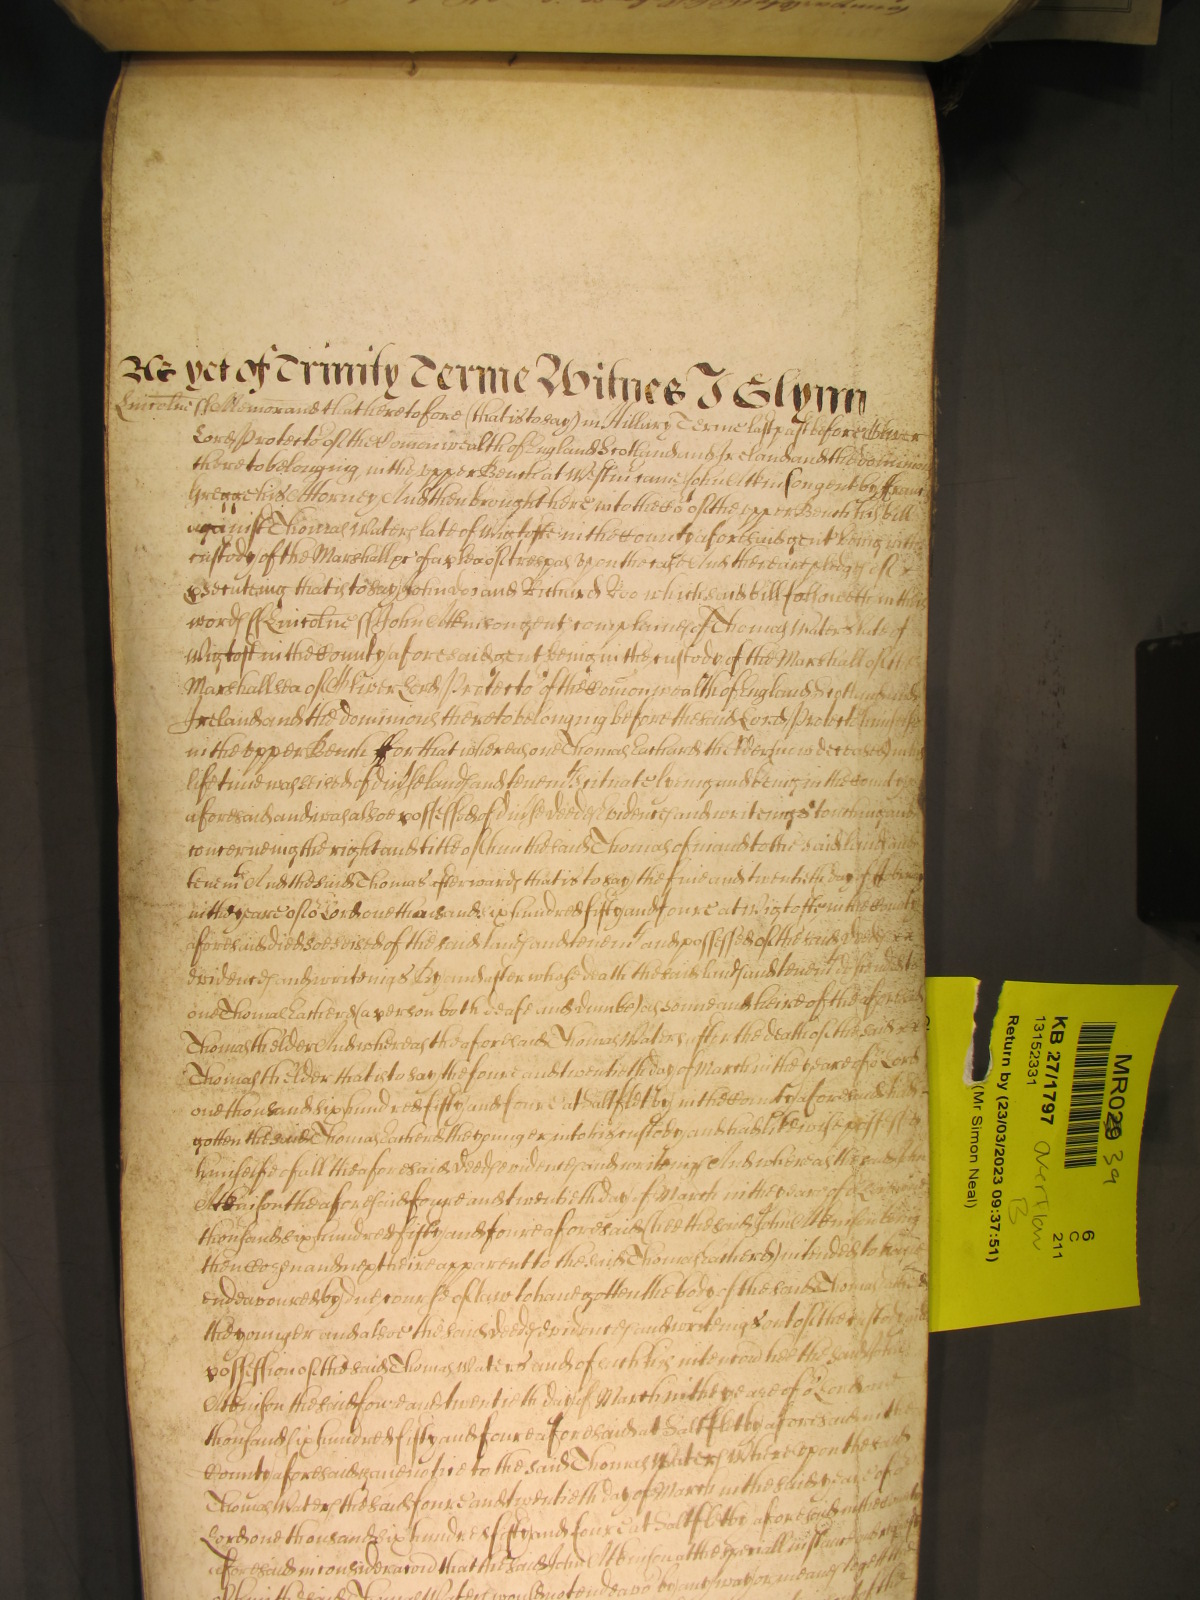 As yet of Trinity Terme Witnes J Glynn
Lincolne ss Memorand that heretofore (that is to say) in Hillary Terme last past before Oliver
Lord Protector of the Comonwealth of England Scotland and Ireland and the dominions
thereto belonging in the upper Bench at Westm came John Atkinson gent by
his Attorney And then brought here into the Co of the upper Bench his Bill
against Thomas Waters late of Wigtofte in the County aforesaid gent being in the
custody of the Marshall &c of a plea of trespas upon the case And there are pledges of
prosecuteing that is to say John Doo and Richard Roo which said Bill followeth in these
words ss Lincolne ss John Atkinson gent complaines of Thomas Waters late of
Wigtoft in the County aforesaid gent being in the custody of the Marshall of the
Marshallsea of Oliver Lord Protector of the Comonwealth of England Scotland and
Ireland and the dominions thereto belonging before the said Lord Protector
in the upper Bench For that whereas one Thomas Lathard the elder now deceased in his
life time was seised of divse lands and tenemts scituate lyeing and being in the County
aforesaid and was alsoe possessed of divse deedes evidences and writeings touching and
concerneing the right and title of him the said Thomas of in and to the said lands and
tenemts And the said Thomas afterwards that is to say the five and twentieth day of
in the yeare of or Lord one thousand six hundred fifty and foure at Wigtofte in the County
aforesaid died soe seised of the said lands and tenemts and possessed of the said deedes
evidences and writeings By and after whose death the said lands and tenemts descended to
one Thomas (a person both deafe and dumbe) as sonne and heire of the aforesaid
Thomas the elder And whereas the aforesaid Thomas Waters after the death of the said
Thomas the elder that is to say the foure and twentieth day of March in the yeare of or Lord
one thousand six hundred fifty and foure at Saltfletby in the County aforesaid had
gotten the said Thomas the younger into his custody and had likewise possessed
himselfe of all the aforesaid deedes evidences and writeings And whereas the said John
Atkinson the aforesaid foure and twentieth day of March in the yeare of or Lord one
thousand six hundred fifty and foure aforesaid (hee the said John Atkinson being
then Cosen and next heire apparent to the said Thomas) intended to have
endeavoured by due course of law to have gotten the body of the said Thomas
the younger and alsoe the said deedes evidences and writeings out of the custody and
possession of the said Thomas Waters and of such his intencon hee the said John
Atkinson the said foure and twentieth day of March in the yeare of or Lord one
thousand six hundred fifty and foure aforesaid at Saltfletby aforesaid in the
County aforesaid gave notice to the said Thomas Waters Whereupon the said
Thomas Waters the said foure and twentieth day of March in the said yeare of or
Lord one thousand six hundred fifty and foure at Saltfletby aforesaid in the County
aforesaid in consideracon that the said John Atkinson at the speciall instance and request
of him the said Thomas Waters would not endeavor by any way or meanes to gett the
MR029 39
KB 27/1797
13152331
Return by (23/03/2023 09:37:51)
(Mr Simon Neal)
6
C
211
Overflow
B